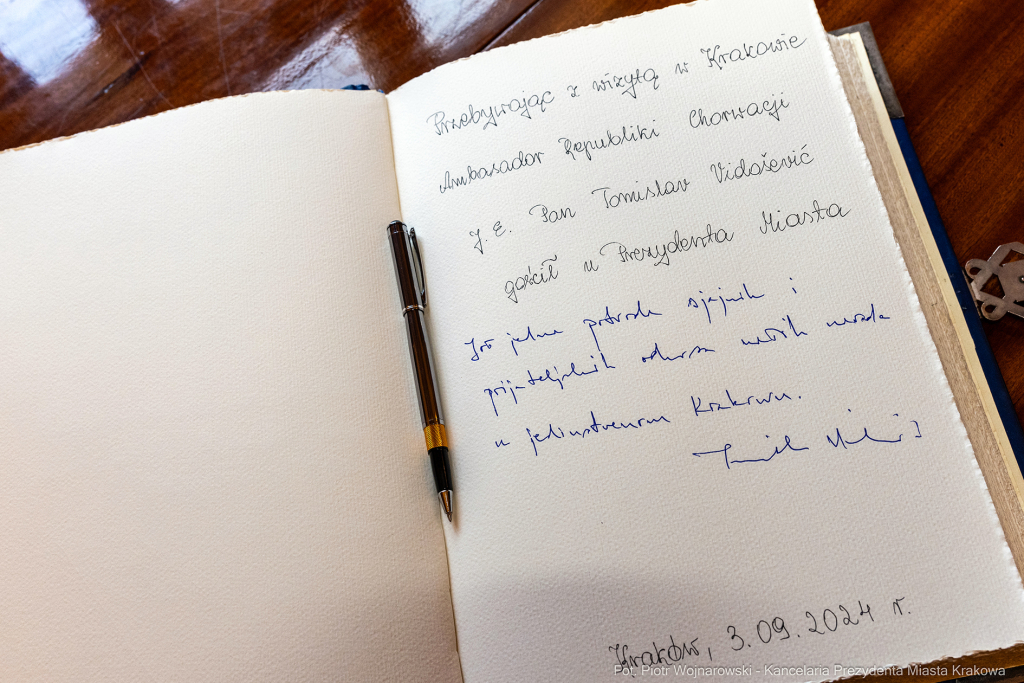 Przebywając z wizytą w Krakowie
Ambasador Republiki Chorwacji
J. E. Pan Tomislav Vidošević
gościł u Prezydenta Miasta
Još jedna potvrda sjajnih i
prijateljskih odnosa naših naroda
u jedinstvenom Krakowu.
Kraków, 3.09.2024 r.
Fot. Piotr Wojnarowski - Kancelaria Prezydenta Miasta Krakowa